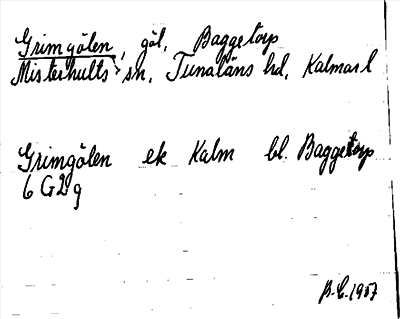 Grimgölen, göl, Baggetorp
Misterhults sn, Tunaläns hd, Kalmar l
Grimgölen ek Kalm bl. Baggetorp
6 G2g
B.C. 1957